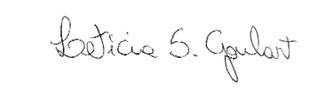 Leticia S. Goulart